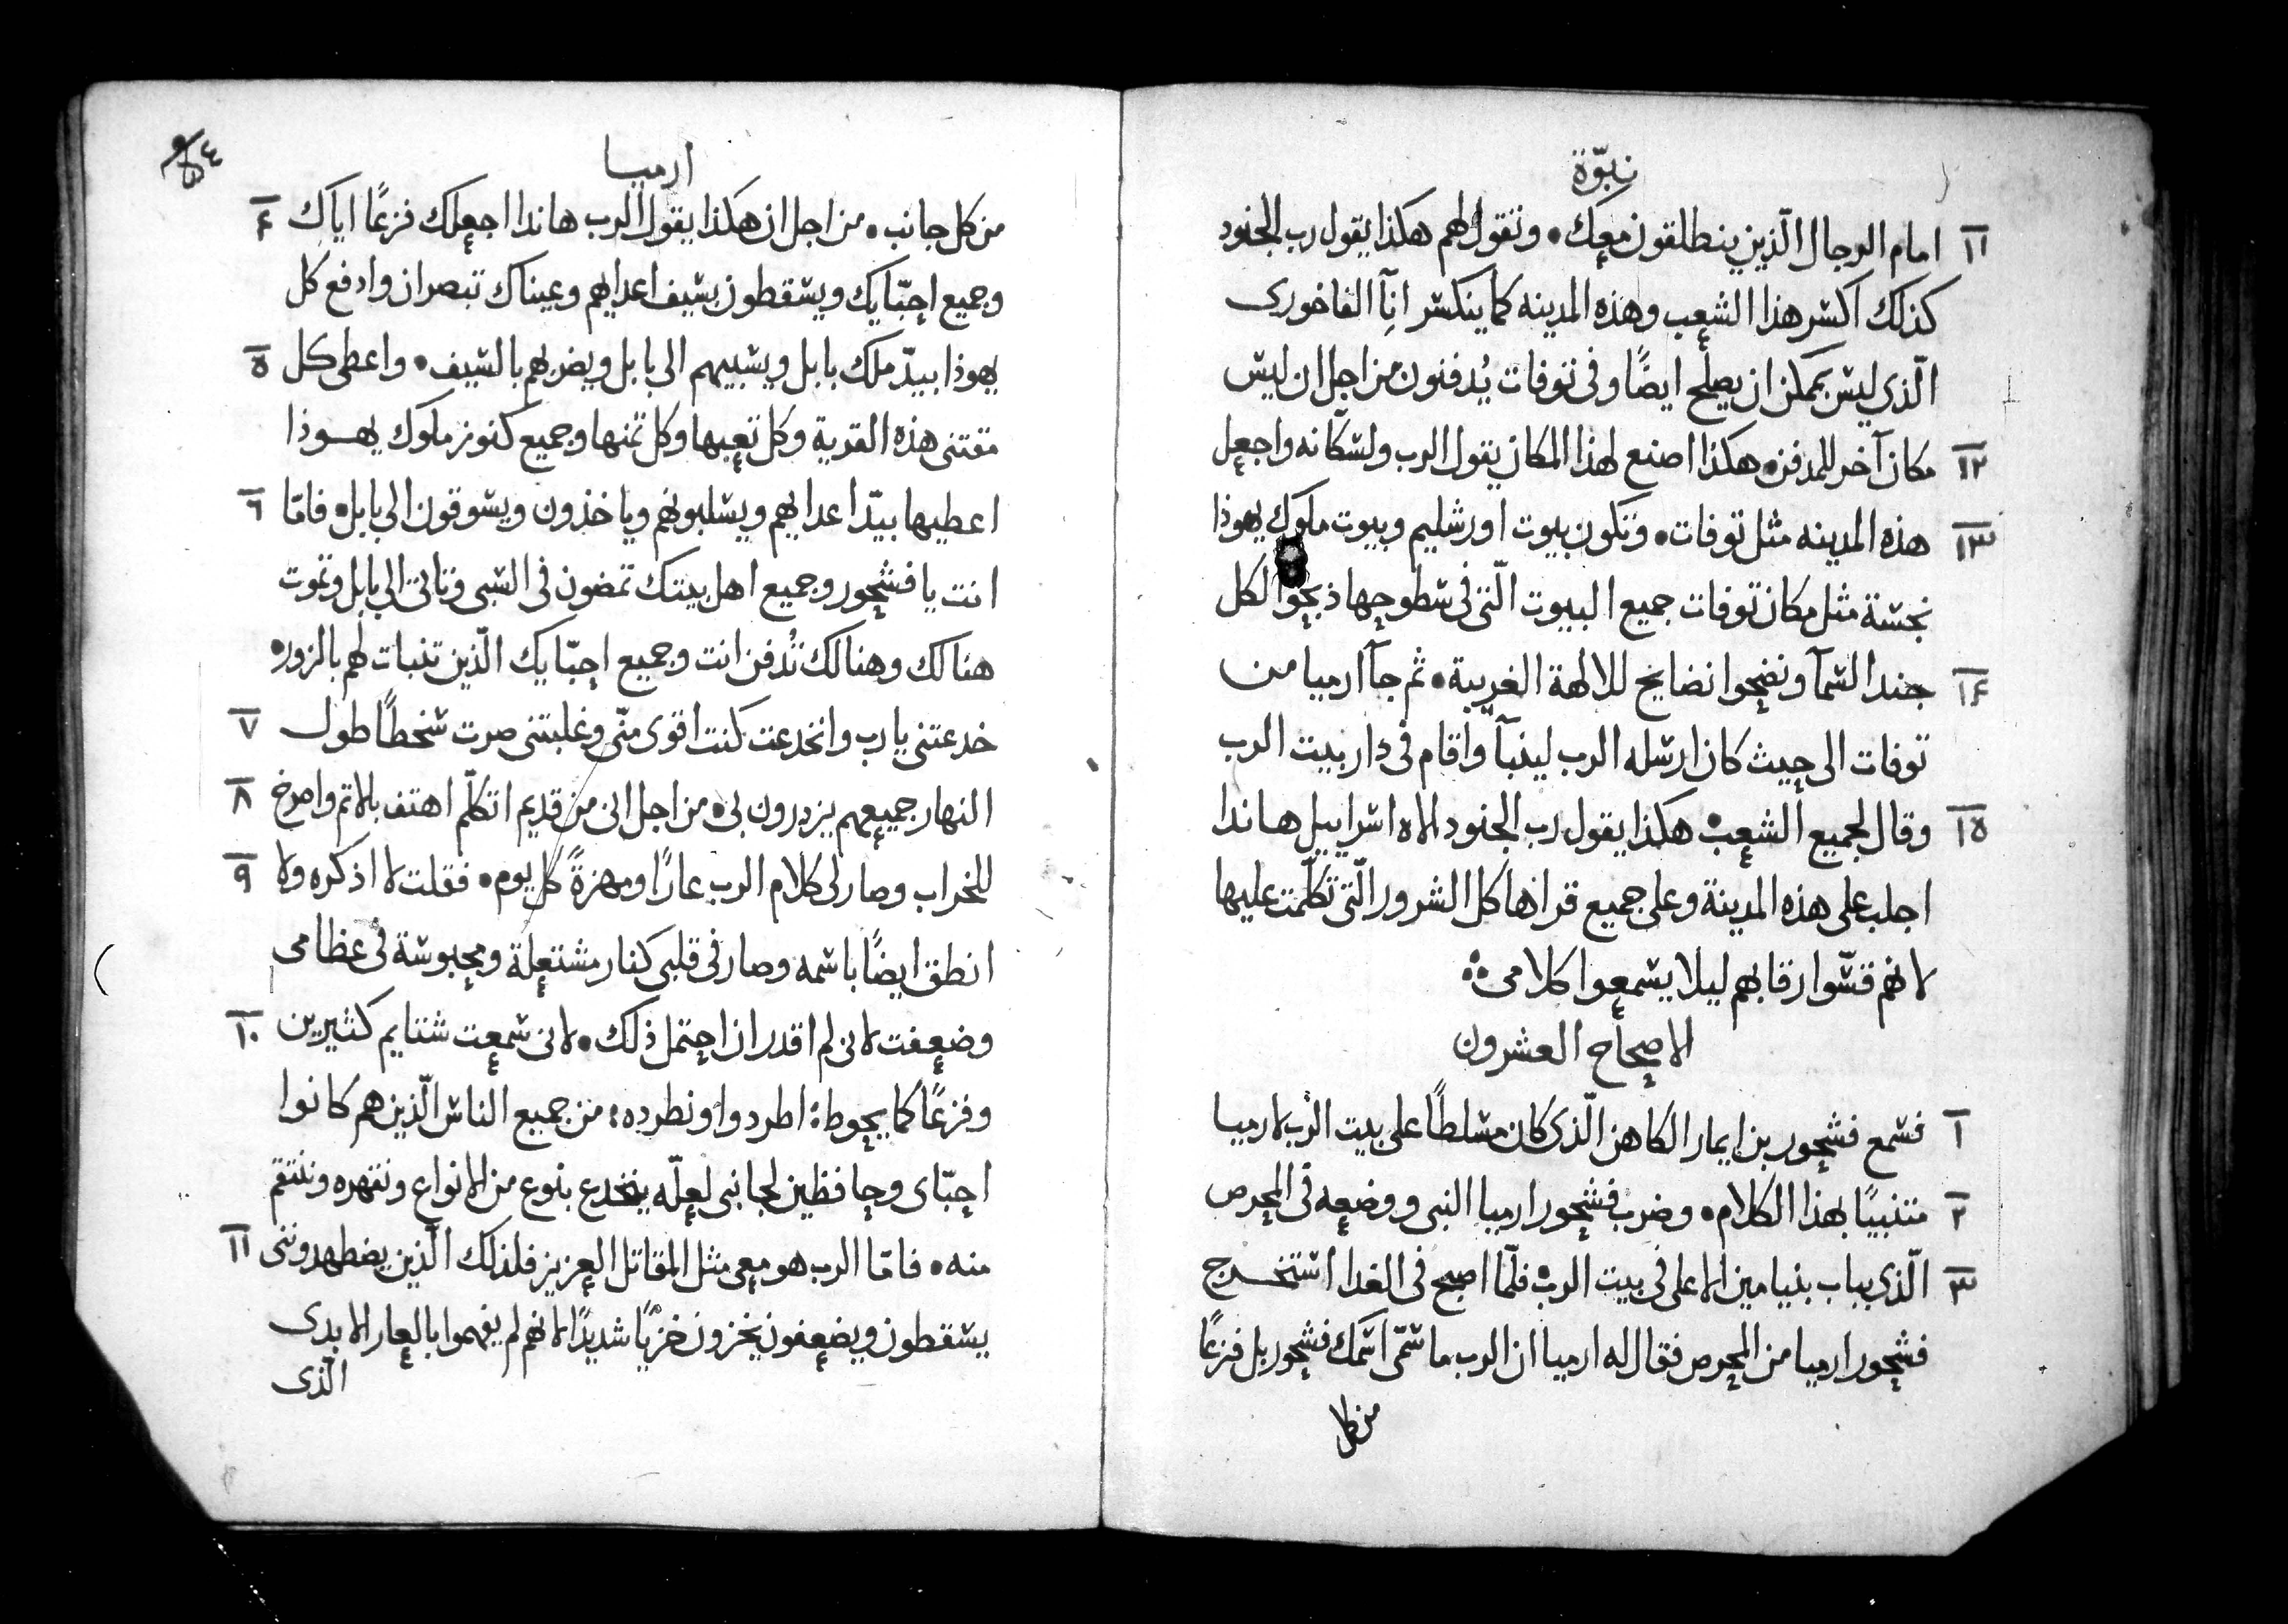 نبوّة
١١ امام الرجال الّذين ينطلقون معك. وتقول لهم هكذا يقول رب الجنود
كذلك اكسر هذا الشعب وهذه المدينه كما ينكسر انآ الفاخورى
الّذي ليس يمكن ان يصلح ايضًا وفى توفات يُدفنون من اجل ان ليس
١٢ مكان آخر للمدفن. هكذا اصنع لهذا المكان يقول الرب ولسكّانه واجعل
١٣ هذه المدينه مثل توفات. وتكون بيوت اورشليم وبيوت ملوك يهوذا
نجسة مثل مكان توفات جميع البيوت الّتى فى سطوحها ذبحوا لكل
١٤ جند السمآ ونضحوا نضايح للالهة الغريبة. ثم جآ ارميا من
توفات الى حيث كان ارسله الرب ليتنبآ واقام فى دار بيت الرب
١٥ وقال لجميع الشعب. هكذا يقول رب الجنود الاه اسراييل هانذا
اجلب على هذه المدينة وعلى جميع قراها كل الشرور الّتى تكلّمت عليها
لانهم قسّوا رقابهم ليلا يسمعوا كلامى
الاصحاح العشرون
١ فسمع فشحور بن ايمار الكاهن الّذى كان مسلطًا على بيت الرب لارميا
٢ متنبيًا بهذا الكلام. وضرب فشحور ارميا النبى ووضعه فى المحرص
٣ الّذى بباب بنيامين الاعلى فى بيت الرب. فلمّا اصبح فى الغد استخرج
فشحور ارميا من المحرص فقال له ارميا ان الرب ما سمّى اسمك فشحور بل فزعًا
من كل
ارميا
٤ من كل جانب. من اجل ان هكذا يقول الرب هانذا اجعلك فزعًا اياك
وجميع احبّايك ويسقطون بسيف اعدايهم وعيناك تبصران وادفع كل
٥ يهوذا بيدّ ملك بابل ويسبيهم الى بابل ويضربهم بالسيف. واعطى كل
مقتنى هذه القرية وكل تعبها وكل ثمنها وجميع كنوز ملوك يهوذا
٦ اعطيها بيدّ اعدايهم ويسلبونهم وياخذون ويسوقون الى بابل. فامّا
انت يا فشحور وجميع اهل بيتك تمضون فى السبى وتاتى الى بابل وتموت
هنالك وهنالك تُدفن انت وجميع احبّايك الّذين تنبات لهم بالزور.
٧ خدعتنى يا رب وانخدعت كنت اقوى منّى وغلبتنى صرت سخطًا طول
٨ النهار جميعهم يزدرون بى. من اجل انى من قديم اتكلّم اهتف بالاثم واصرخ
٩ للخراب وصار لى كلام الرب عارًا ومهزةً كل يوم. فقلت لا اذكره ولا
انطق ايضًا باسمه وصار فى قلبى كنار مشتعلة ومحبوسة فى عظامى
١٠ وضعفت لانى لم اقدر ان احتمل ذلك. لانى سمعت شتايم كثيرين
وفزعًا كما يحوط: اطردوا ونطرده: من جميع الناس الّذين هم كانوا
احبّاى وحافظين لجانبى لعلّه ينخدع بنوع من الانواع ونقهره وننتقم
١١ منه. فامّا الرب هو معى مثل المقاتل العزيز فلذلك الّذين يضطهدوننى
يسقطون ويضعفون يخزون خزيًا شديدًا لانهم لم يفهموا بالعار الابدى
الّذى